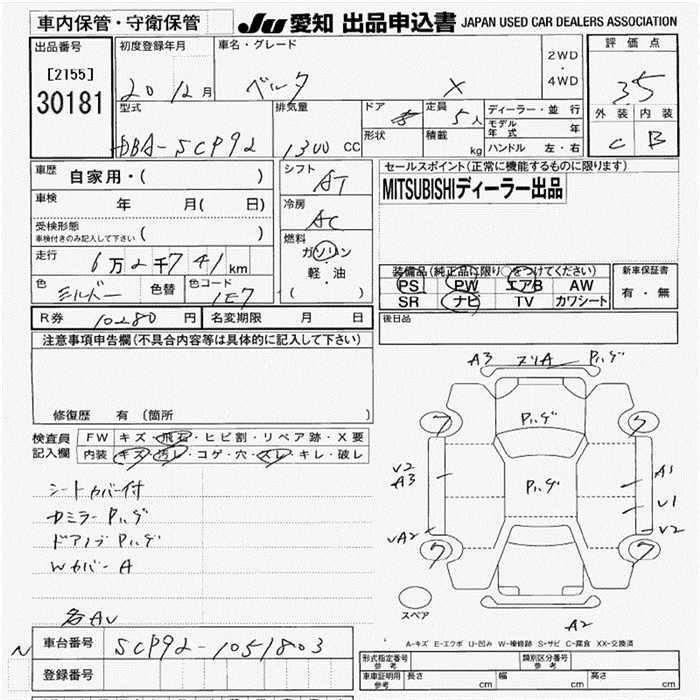 車内保管・守衛保管 JU 愛知 出品申込書 JAPAN USED CAR DEALERS ASSOCIATION
出品番号 初度登録年月 車名・グレード 2WD・4WD 評価点
[2155]
30181
20 12月 ベルタ X 3.5
外装 内装
C B
型式 排気量 ドア 定員 ディーラー・並行
DBA-SCP92 1300 CC 5人 モデル年式 年
形状 積載 kg ハンドル 左・右
車歴 自家用・( )
シフト AT
セールスポイント(正常に機能するものに限ります)
MITSUBISHIディーラー出品
車検 年 月( 日)
冷房 AC
受検形態
車検付きのみ記入して下さい ( )
燃料
ガソリン
軽・油
( )
走行 6万2千741km
色 シルバー 色替 色コード 1E7
装備品(純正品に限り○をつけてください) 新車保証書
PS PW エアB AW 有・無
SR ナビ TV カワシート
R券 10280円 名変期限 月 日
後日品
注意事項申告欄(不具合内容等は具体的に記入して下さい)
修復歴 有 (箇所 )
検査員記入欄 FW キズ・飛石・ヒビ割・リペア跡・X要
内装 キズ・汚レ・コゲ・穴・スレ・キレ・破レ
シートカバー付
ドアミラーPハゲ
ドアノブPハゲ
Wカバー A
各AU
A3 A Pハゲ
Pハゲ
Pハゲ
ワ ワ
U2
A3
A1
U1
UA2
U2
ワ ワ
スペア
A2
A-キズ E-エクボ U-凹み W-補修跡 S-サビ C-腐食 XX-交換済
N 車台番号 SCP92-1051803
登録番号
形式指定番号 参考 類別区分番号 参考
車庫証明用 参考 長さ cm 幅 cm 高さ cm